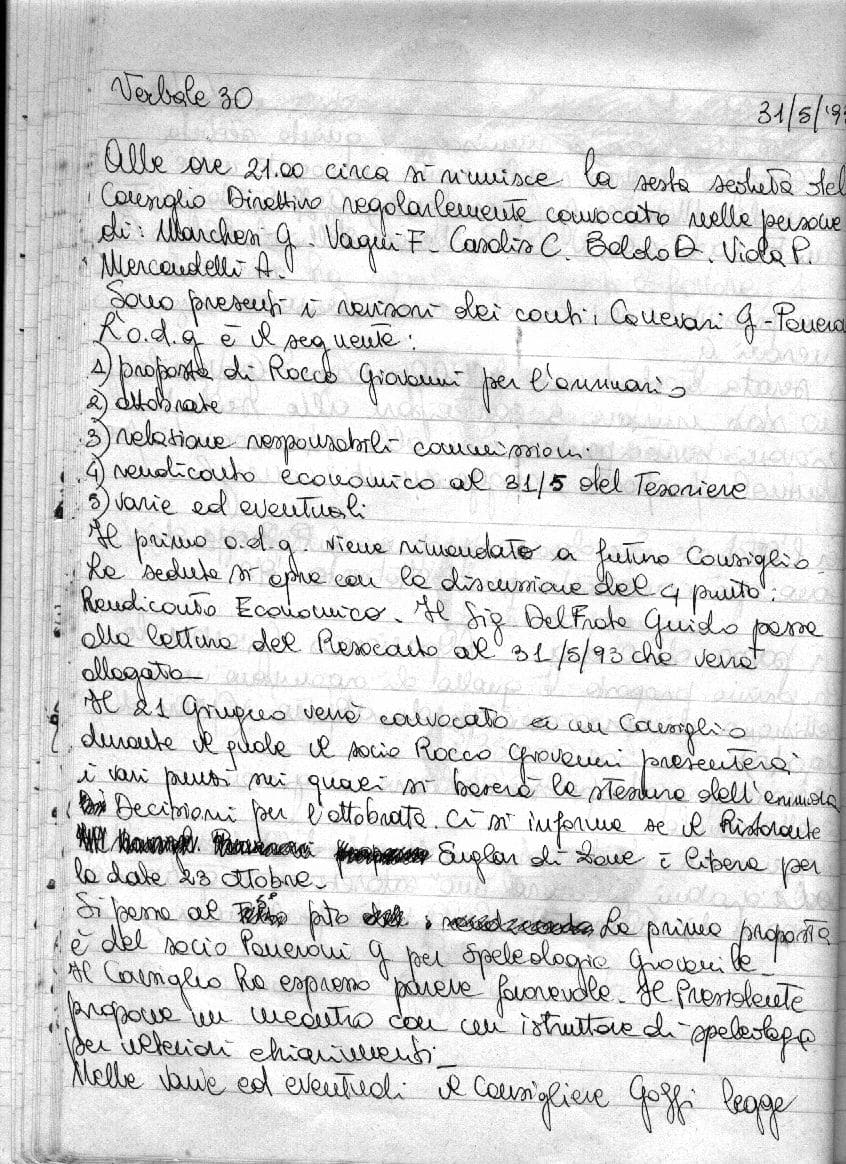 Verbale 30
31/5/'93
Alle ore 21.00 circa si riunisce la sesta seduta del
Consiglio Direttivo regolarlemente convocato nelle persone
di: Marchesi G. Vaqui F. Casolis C. Boldo D. Viola P.
Mercandelli A.
Sono presenti i revisori dei conti: Canevari G - Panera
L'o.d.g è il seguente:
1) proposta di Rocco Giovanni per l'annuario
2) ottobrate
3) relazione responsabili commissioni
4) rendiconto economico al 31/5 del Tesoriere
5) varie ed eventuali
Il primo o.d.g. viene rimandato a futuro Consiglio
La seduta si apre con la discussione del 4 punto:
Rendiconto Economico. Il Sig Del Frate Guido passa
alla lettura del Resoconto al 31/5/93 che verrà
allegato
Il 21 Giugno verrà convocato un Consiglio
durante il quale il socio Rocco Giovanni presenterà
i vari punti sui quali si baserà la stesura dell'
Decisioni per l'ottobrata. Ci si informa se il Ristorante
di Zone è libero per
la date 23 ottobre.
Si passa al 3° pto La prima proposta
è del socio Paneroni G per speleologia Giovanile
Il Consiglio ha espresso parere favorevole. Il Presidente
propone un incontro con un istruttore di speleologia
per ulteriori chiarimenti.
Nelle varie ed eventuali il Consigliere Goffi legge